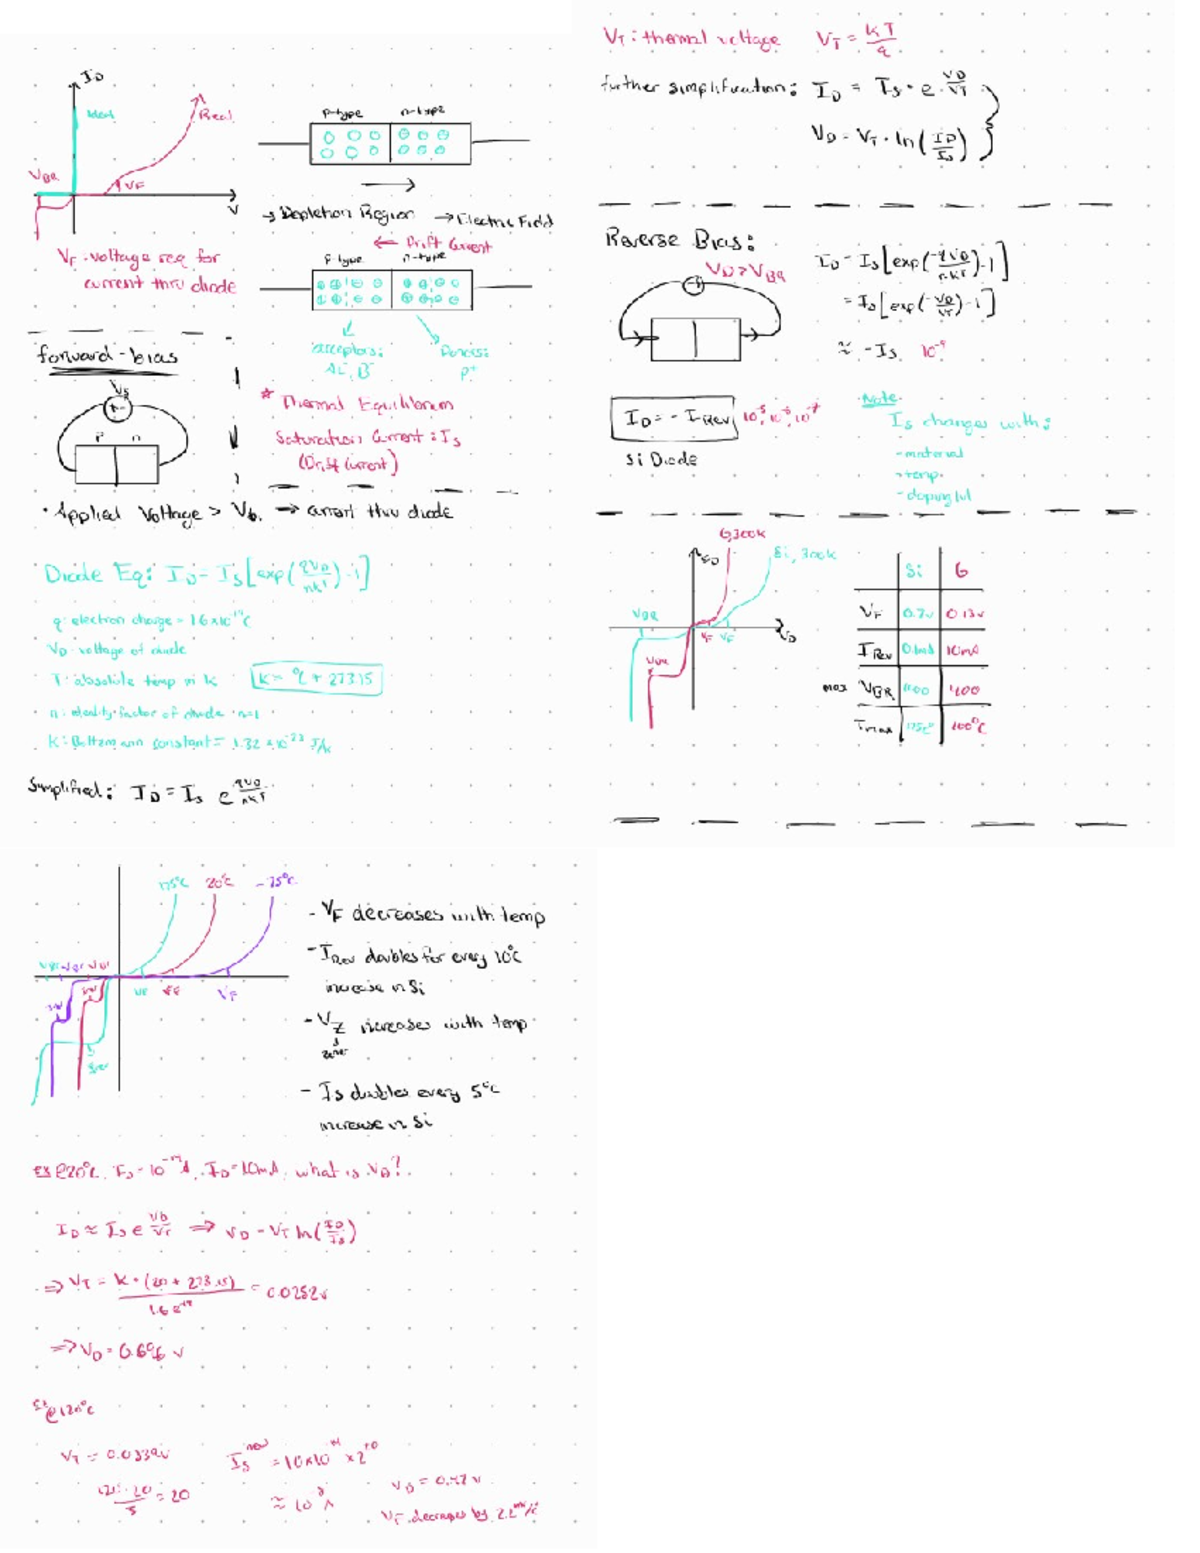 I_D
Ideal
Real
V_BR
V_F
V
V_F - voltage req for
current thru diode
p-type n-type
→ Depletion Region → Electric Field
← Drift Current
p-type n-type
acceptors:
Donors:
* Thermal Equilibrium
Saturation Current: I_S
(Drift Current)
forward-bias
p n
• Applied Voltage > V_b. → current thru diode
Diode Eq: I_D = I_S [exp(qV_D/nkT) - 1]
q: electron charge = 1.6x10^-19 C
V_D - voltage of diode
T: absolute temp in K K = °C + 273.15
n: ideality factor of diode n=1
K: Boltzmann constant = 1.32 x10^-23 J/K
Simplified: I_D = I_S e^(qV_D/nkT)
V_T: thermal voltage V_T = kT/q
further simplification: I_D = I_S · e^(V_D/V_T)
V_D = V_T · ln(I_D/I_S)
Reverse Bias:
V_D > V_BR
I_D = I_S [exp(-qV_D/nkT) - 1]
= I_S [exp(-V_D/V_T) - 1]
≈ -I_S 10^-9
I_D = - I_Rev 10^-5, 10^-6, 10^-7
Si Diode
Note
I_S changes with:
- material
- temp
- doping lvl
G, 300K
Si, 300K
I_D
V_BR
V_F V_F
V_D
V_BR
Si G
V_F 0.7v 0.13v
I_Rev 0.1mA 10mA
max V_BR 400
T_max 175C° 100°C
175°C 20°C -75°C
V_F V_F V_F
- V_F decreases with temp
- I_Rev doubles for every 10°C
increase in Si
- V_Z increases with temp
zener
- I_S doubles every 5°C
increase in Si
ex @20°C, I_S = 10^-14 A, I_D = 10mA, what is V_D?
I_D ≈ I_S e^(V_D/V_T) ⇒ V_D = V_T ln(I_D/I_S)
⇒ V_T = K · (20 + 273.15) / 1.6e^-19 = 0.0252v
⇒ V_D = 0.696 v
ex @120°C
V_T = 0.0339v
120 - 20 / 5 = 20
I_S^new = 10x10^-14 x 2^20
≈ 10^-8 A
V_D = 0.47 v
V_F decreases by 2.2 mV/°C